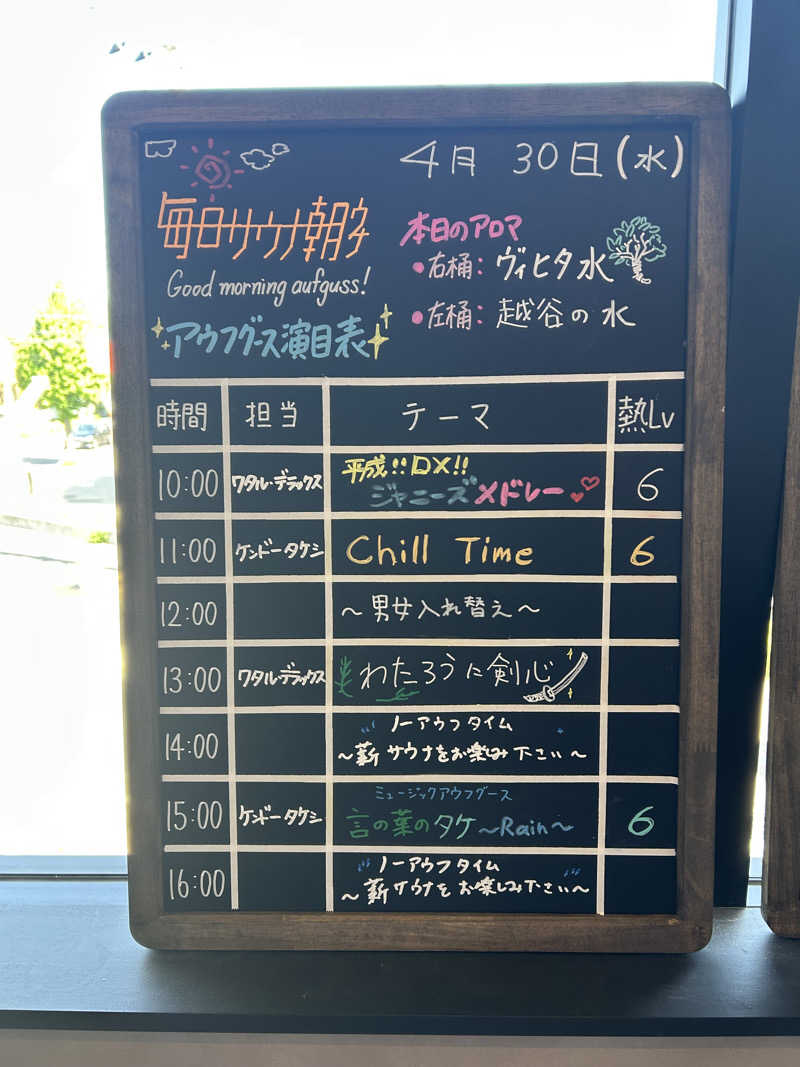 4月 30日(水)
毎日サウナ朝タ
Good morning aufguss!
アウフグース演目表
本日のアロマ
・右桶: ヴィヒタ水
・左桶: 越谷の水
時間 担当 テーマ 熱Lv
10:00 ワタル・デラックス 平成!!DX!! ジャニーズメドレー 6
11:00 ケンドータケシ Chill Time 6
12:00 ~男女入れ替え~
13:00 ワタル・デラックス わたろうに剣心
14:00 ノーアウフタイム
~薪サウナをお楽しみ下さい~
15:00 ケンドータケシ ミュージックアウフグース
言の葉のタケ~Rain~ 6
16:00 ノーアウフタイム
~薪サウナをお楽しみ下さい~